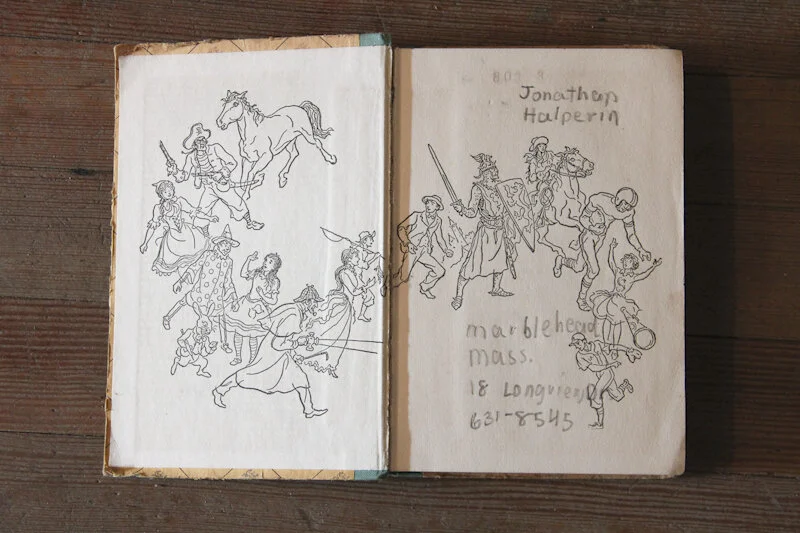 Jonathan
Halperin
marblehead
mass.
18 Longview
631-8545